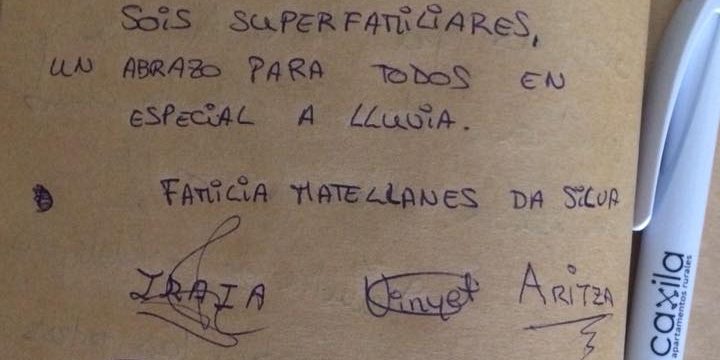 SOIS SUPERFAMILIARES,
UN ABRAZO PARA TODOS EN
ESPECIAL A LLUVIA.
FAMILIA MATELLANES DA SILVA
IRAIA Vinyet ARITZA
caxila
apartamentos rurales